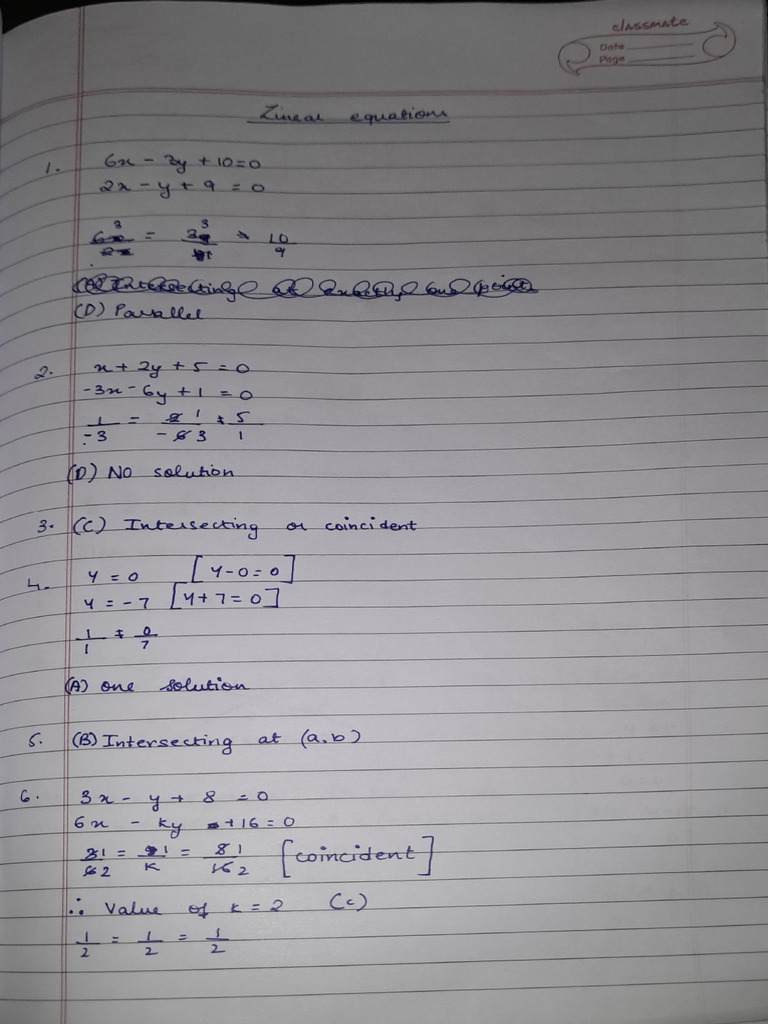 classmate
Date
Page
Linear equations
1. 6x - 3y + 10 = 0
2x - y + 9 = 0
3 = 3 ≠ 10/9
(D) Parallel
2. x + 2y + 5 = 0
-3x - 6y + 1 = 0
1/-3 = 1/-3 ≠ 5/1
(D) No solution
3. (C) Intersecting or coincident
4. y = 0 [y - 0 = 0]
y = -7 [y + 7 = 0]
1/1 ≠ 0/7
(A) one solution
5. (B) Intersecting at (a,b)
6. 3x - y + 8 = 0
6x - ky + 16 = 0
1/2 = 1/k = 1/2 [coincident]
∴ Value of k = 2 (C)
1/2 = 1/2 = 1/2